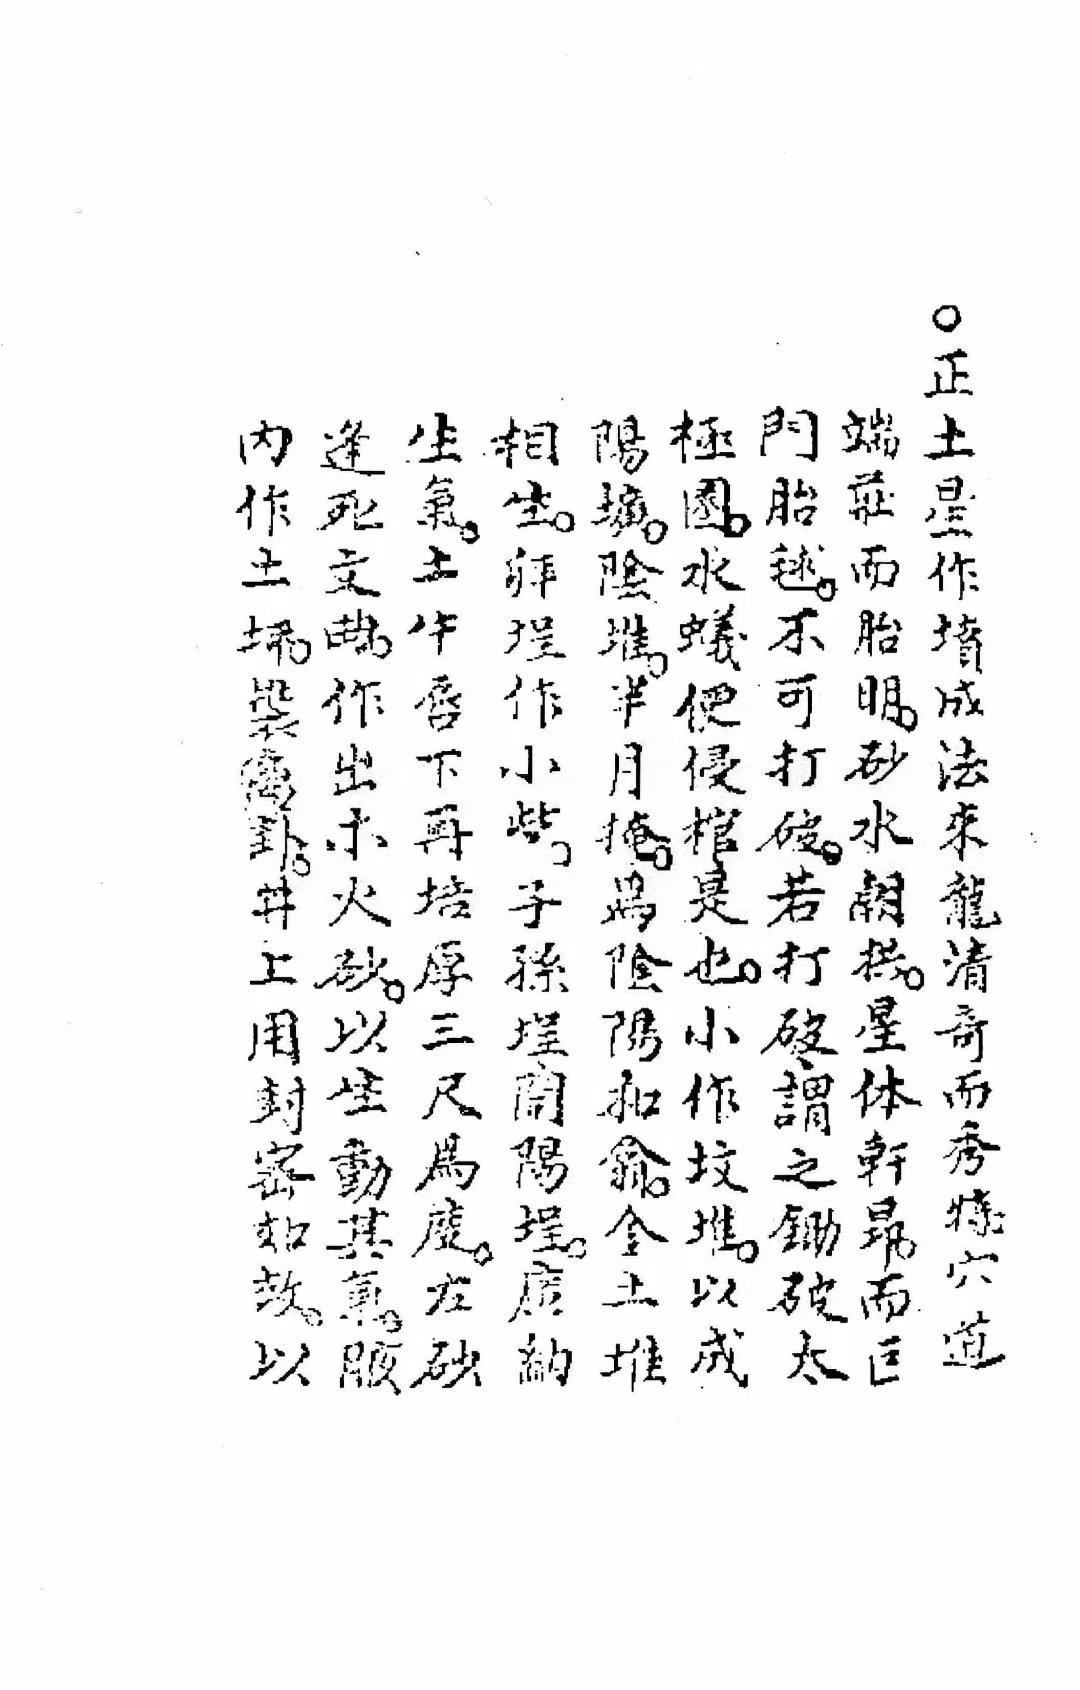 ○正土星作墳成法來龍清奇而秀穴道
端莊而胎明。砂水朝拱。星体軒昂而巨
門胎毬。不可打破。若打破謂之鋤破太
極圓。水蟻便侵棺是也。小作坟堆。以成
陽壙。陰堆。半月掩。為陰陽扣翕。金土堆
相生。拜埕作小些。子孫埕闊陽埕。廣納
生氣。土牛唇下再培厚三尺為度。左砂
逢死文曲。作出木火砂。以生動其氣。腋
內作土埽。卦。井上用封密如故。以